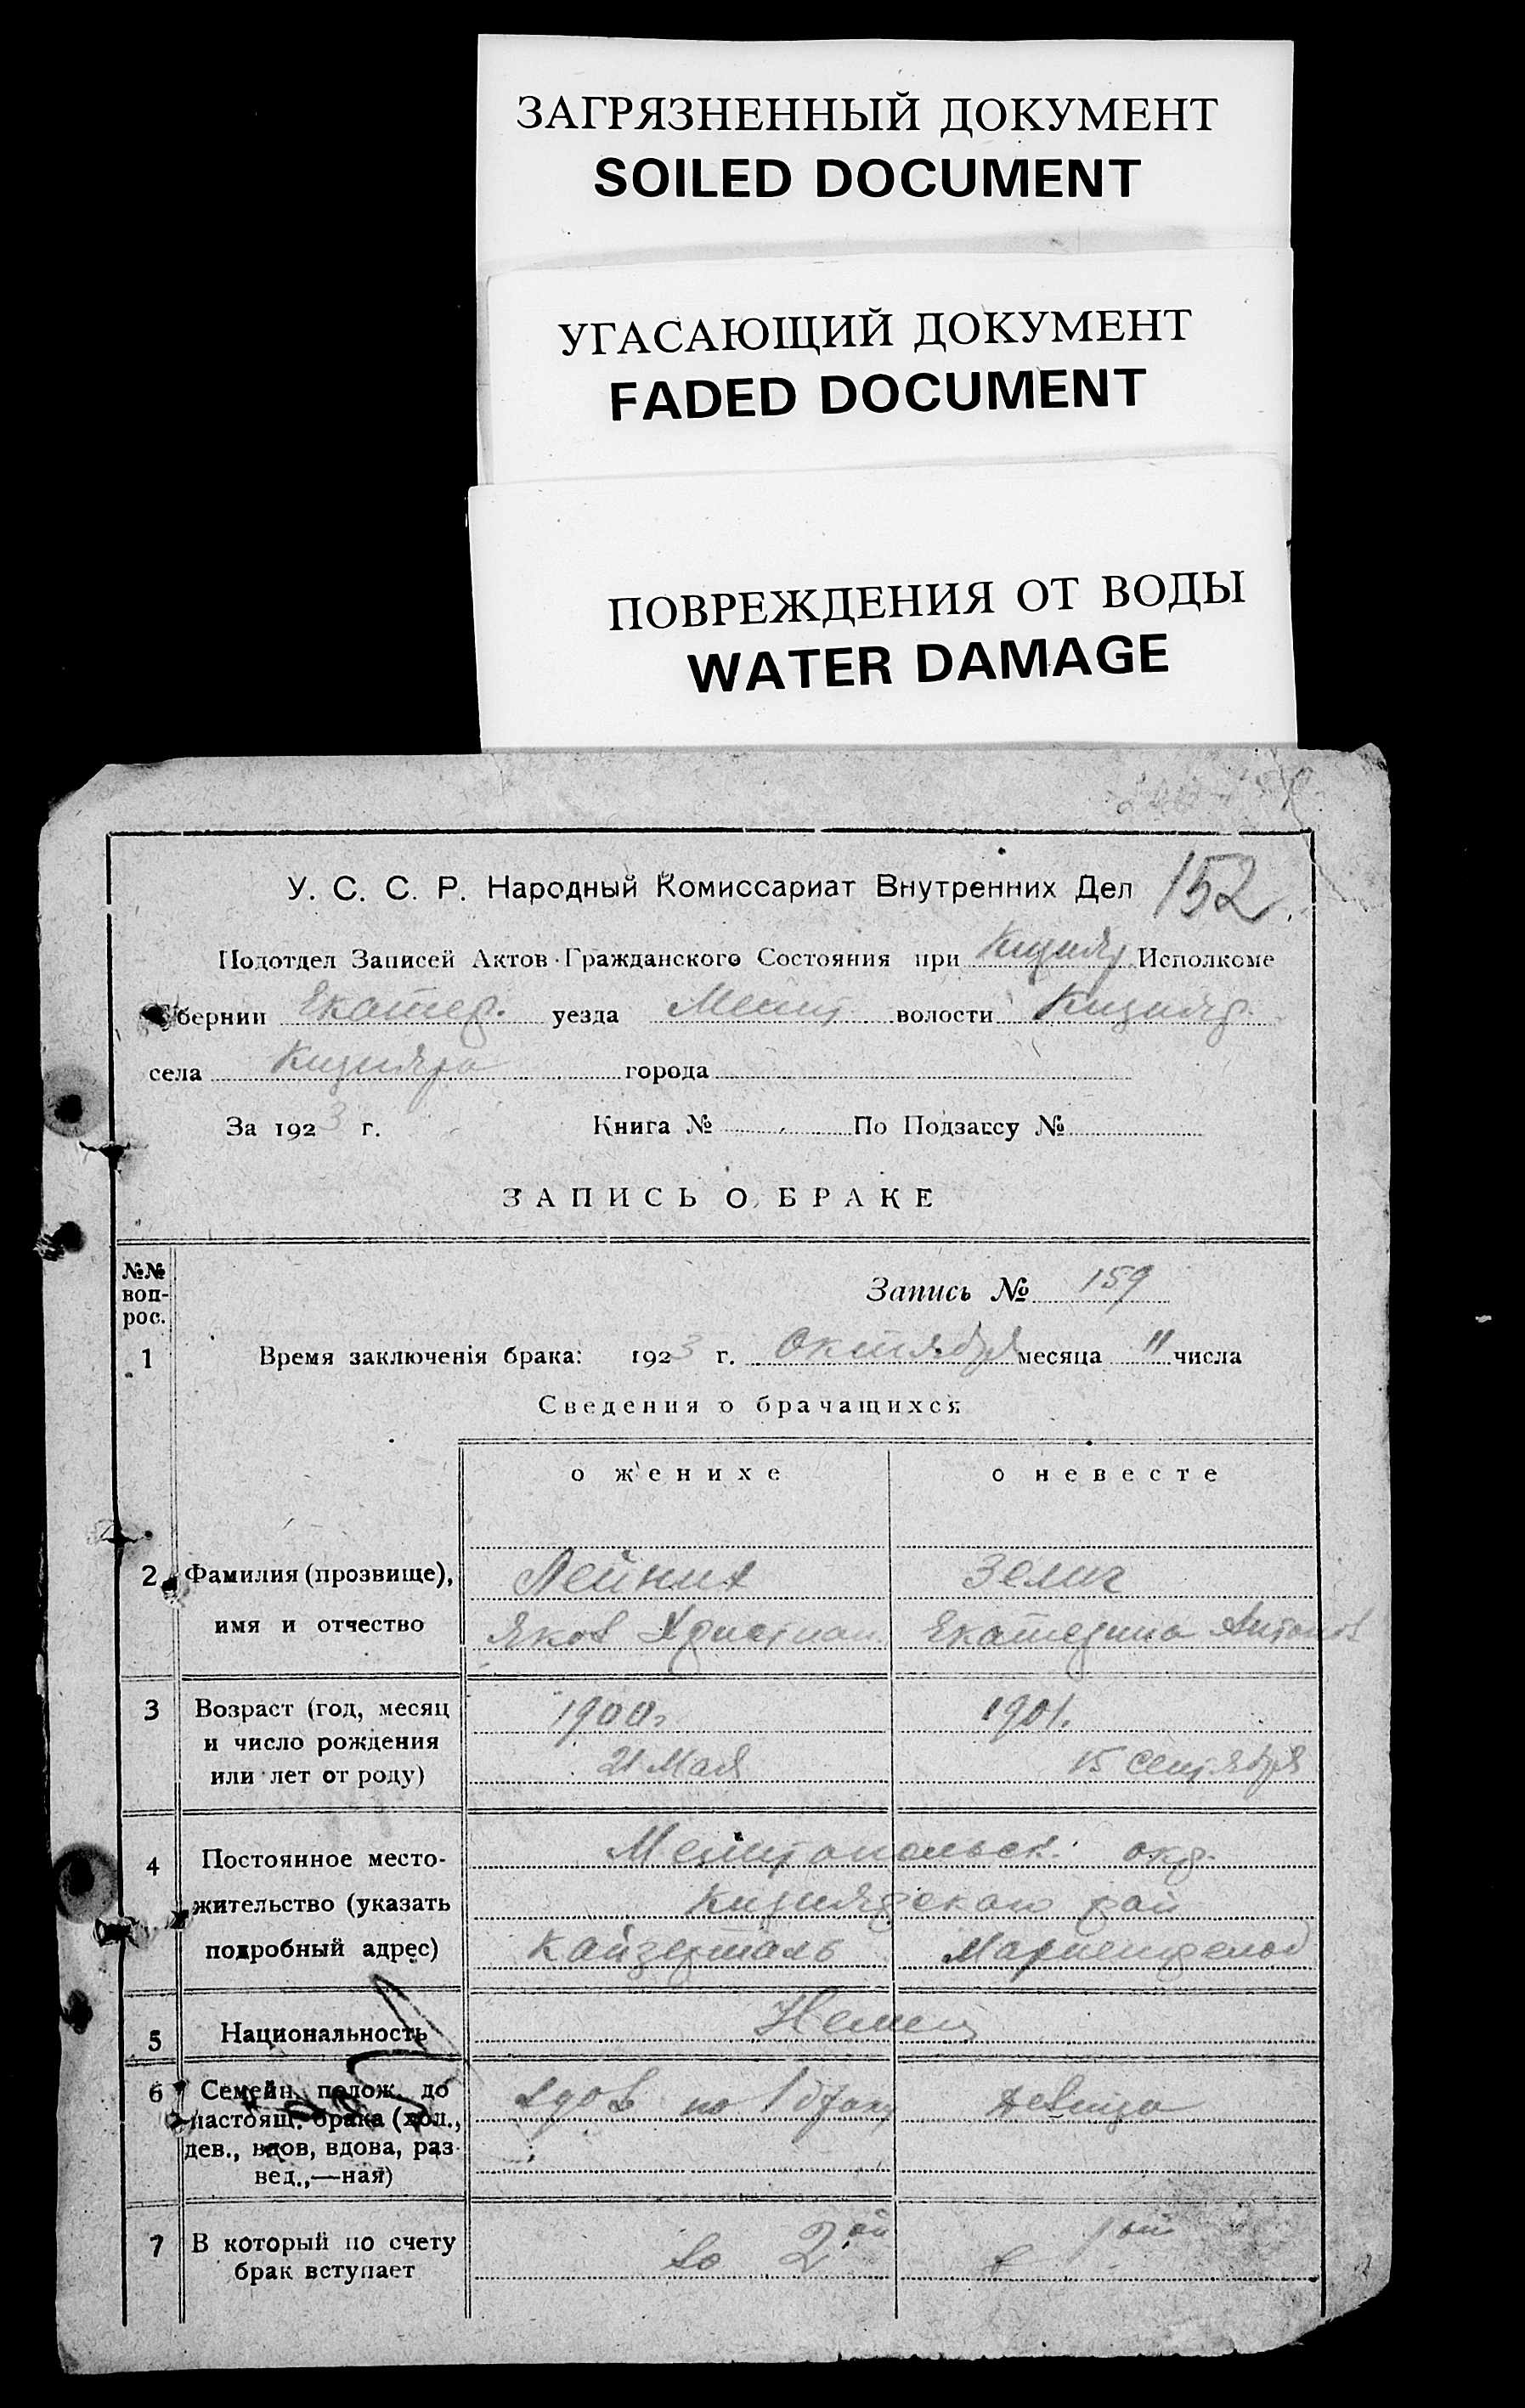 ЗАГРЯЗНЕННЫЙ ДОКУМЕНТ
SOILED DOCUMENT
УГАСАЮЩИЙ ДОКУМЕНТ
FADED DOCUMENT
ПОВРЕЖДЕНИЯ ОТ ВОДЫ
WATER DAMAGE
У. С. С. Р. Народный Комиссариат Внутренних Дел 152.
Подотдел Записей Актов Гражданского Состояния при Кизияр. Исполкоме
Губернии Екатер. уезда Мелит. волости Кизияр.
села Кизияра города
За 1923 г. Книга № По Подзагсу №
ЗАПИСЬ О БРАКЕ
№№ воп- рос.
Запись № 159
1 Время заключенія брака: 1923 г. Октября месяца 11 числа
Сведения о брачащихся
о женихе о невесте
2 Фамилия (прозвище), Лейних Зелиг
имя и отчество Яков Христиан. Екатерина Антонов
3 Возраст (год, месяц 1900г. 1901.
и число рождения 21 Мая 15 сентября
или лет от роду)
4 Постоянное место- Мелитопольск. окр.
жительство (указать Кизиярского рай
подробный адрес) Кайзерталь
5 Национальность Немец
6 Семейн. полож. до вдов по 1 браку девица
настоящ. брака (хол.,
дев., вдов, вдова, раз-
вед.,—ная)
7 В который по счету во 2ой в 1ый
брак вступает